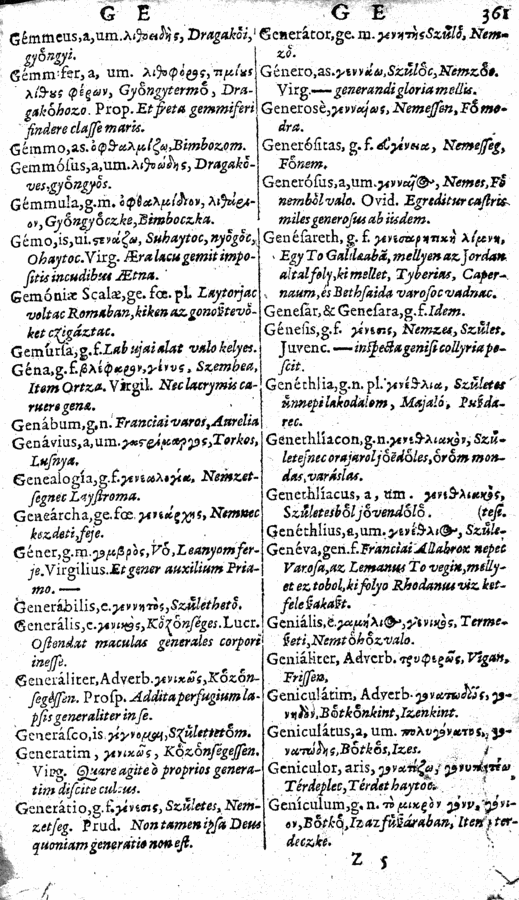 G E
G E 361
Gémmeus, a, um. λιθοειδὴς, Dragakői,
győngyi.
Gémmifer, a, um. λιθοφόρος, τιμίους
λίθους φέρων, Gyöngytermő, Dra-
gakőhozo. Prop. Et freta gemmiferi
findere classe maris.
Gémmo, as. ὀφθαλμίζω, Bimbozom.
Gemmósus, a, um. λιθώδης, Dragakő-
ves, győngyős.
Gémmula, g. m. ὀφθαλμίδιον, λιθάρι-
ον, Gyöngyőczke, Bimboczka.
Gémo, is, ui. στενάζω, Suhaytoc, nyőgőc,
Ohaytoc. Virg. Æra lacu gemit impo-
sitis incudibus Ætna.
Gemóniæ Scalæ, ge. fœ. pl. Laytorjac
voltac Romaban, kiken az gonoſztevő-
ket czigáztac.
Gemúrsa, g. f. Lab ujai alat valo kelyes.
Géna, g. f. βλέφαρον, γένυς, Szembea,
Item Ortza. Virgil. Nec lacrymis ca-
ruere genæ.
Genábum, g. n. Franciai varos, Aurelia
Genávius, a, um. γαστρίμαργος, Torkos,
Lusnya.
Genealogía, g. f. γενεαλογία, Nemzet-
segnec Laystroma.
Geneárcha, ge. fœ. γενεάρχης, Nemnec
kezdeti, feje.
Géner, g. m. γαμβρὸς, Vő, Leanyom fer-
je. Virgilius. Et gener auxilium Pria-
mo. —
Generábilis, e. γεννητὸς, Szűlethető.
Generális, e. γενικὸς, Kőzőnséges. Lucr.
Ostendat maculas generales corpori
inesse.
Generáliter, Adverb. γενικῶς, Kőzőn-
segessen. Prosp. Addita perfugium la-
psis generaliter in se.
Generásco, is. γίγνομαι, Születtetőm.
Generatim, γενικῶς, Kőzőnségessen.
Virg. Quare agite ô proprios genera-
tim discite cultus.
Generátio, g. f. γένεσις, Születes, Nem-
zetseg. Prud. Non tamen ipsa Deus
quoniam generatio non est.
Generátor, ge. m. γεννητὴς Szűlő, Nem-
ző.
Género, as. γεννάω, Szűlőc, Nemzőc.
Virg. — generandi gloria mellis.
Generosè, γενναίως, Nemessen, Fő mo-
dra.
Generósitas, g. f. εὐγένεια, Nemesség,
Főnem.
Generósus, a, um. γενναῖος, Nemes, Fő
nemből valo. Ovid. Egreditur castris
miles generosus ab iisdem.
Genésareth, g. f. γενεσαρητικὴ λίμνη,
Egy To Galilæabā, mellyen az Jordan
altal foly, ki mellet, Tyberias, Caper-
naum, és Bethsaida varosoc vadnac.
Genesar, & Genesara, g. f. Idem.
Génesis, g. f. γένεσις, Nemzea, Szűlet.
Juvenc. — inspecta genesi collyria po-
scit.
Genéthlia, g. n. pl. γενέθλια, Születes
ünnepi lakodalom, Majaló, Puſzda-
rec.
Genethlíacon, g. n. γενεθλιακὸν, Szű-
letesnec orajarol jőēdőles, őrőm mon-
das, varáslas.
Genethlíacus, a, um. γενεθλιακὸς,
Születesből jővendőlő. (tese.
Genéthlius, a, um. γενέθλιος, Szűle-
Genéva, gen. f. Franciai Allabrox nepec
Varosa, az Lemanus To vegin, melly-
et ez tobol, ki folyo Rhodanus viz ket-
fele ſzakaſzt.
Geniális, e. γαμήλιος, γενικὸς, Terme-
ſzeti, Nemtőhőz valo.
Geniáliter, Adverb. τρυφερῶς, Vigan,
Frissen,
Geniculátim, Adverb. γονατωδῶς, γο-
νηδὸν, Bőtkőnkint, Izenkint.
Geniculátus, a, um. πολυγόνατος, γο-
νατώδης, Bőtkős, Izes.
Geniculor, aris, γονατίζω, γονυπετέω,
Térdeplec, Térdet haytoc.
Genículum, g. n. τὸ μικρὸν γόνυ, γόνι-
ον, Bőtkő, Iz az fűſzáraban, Item, ter-
deczke.
Z 5